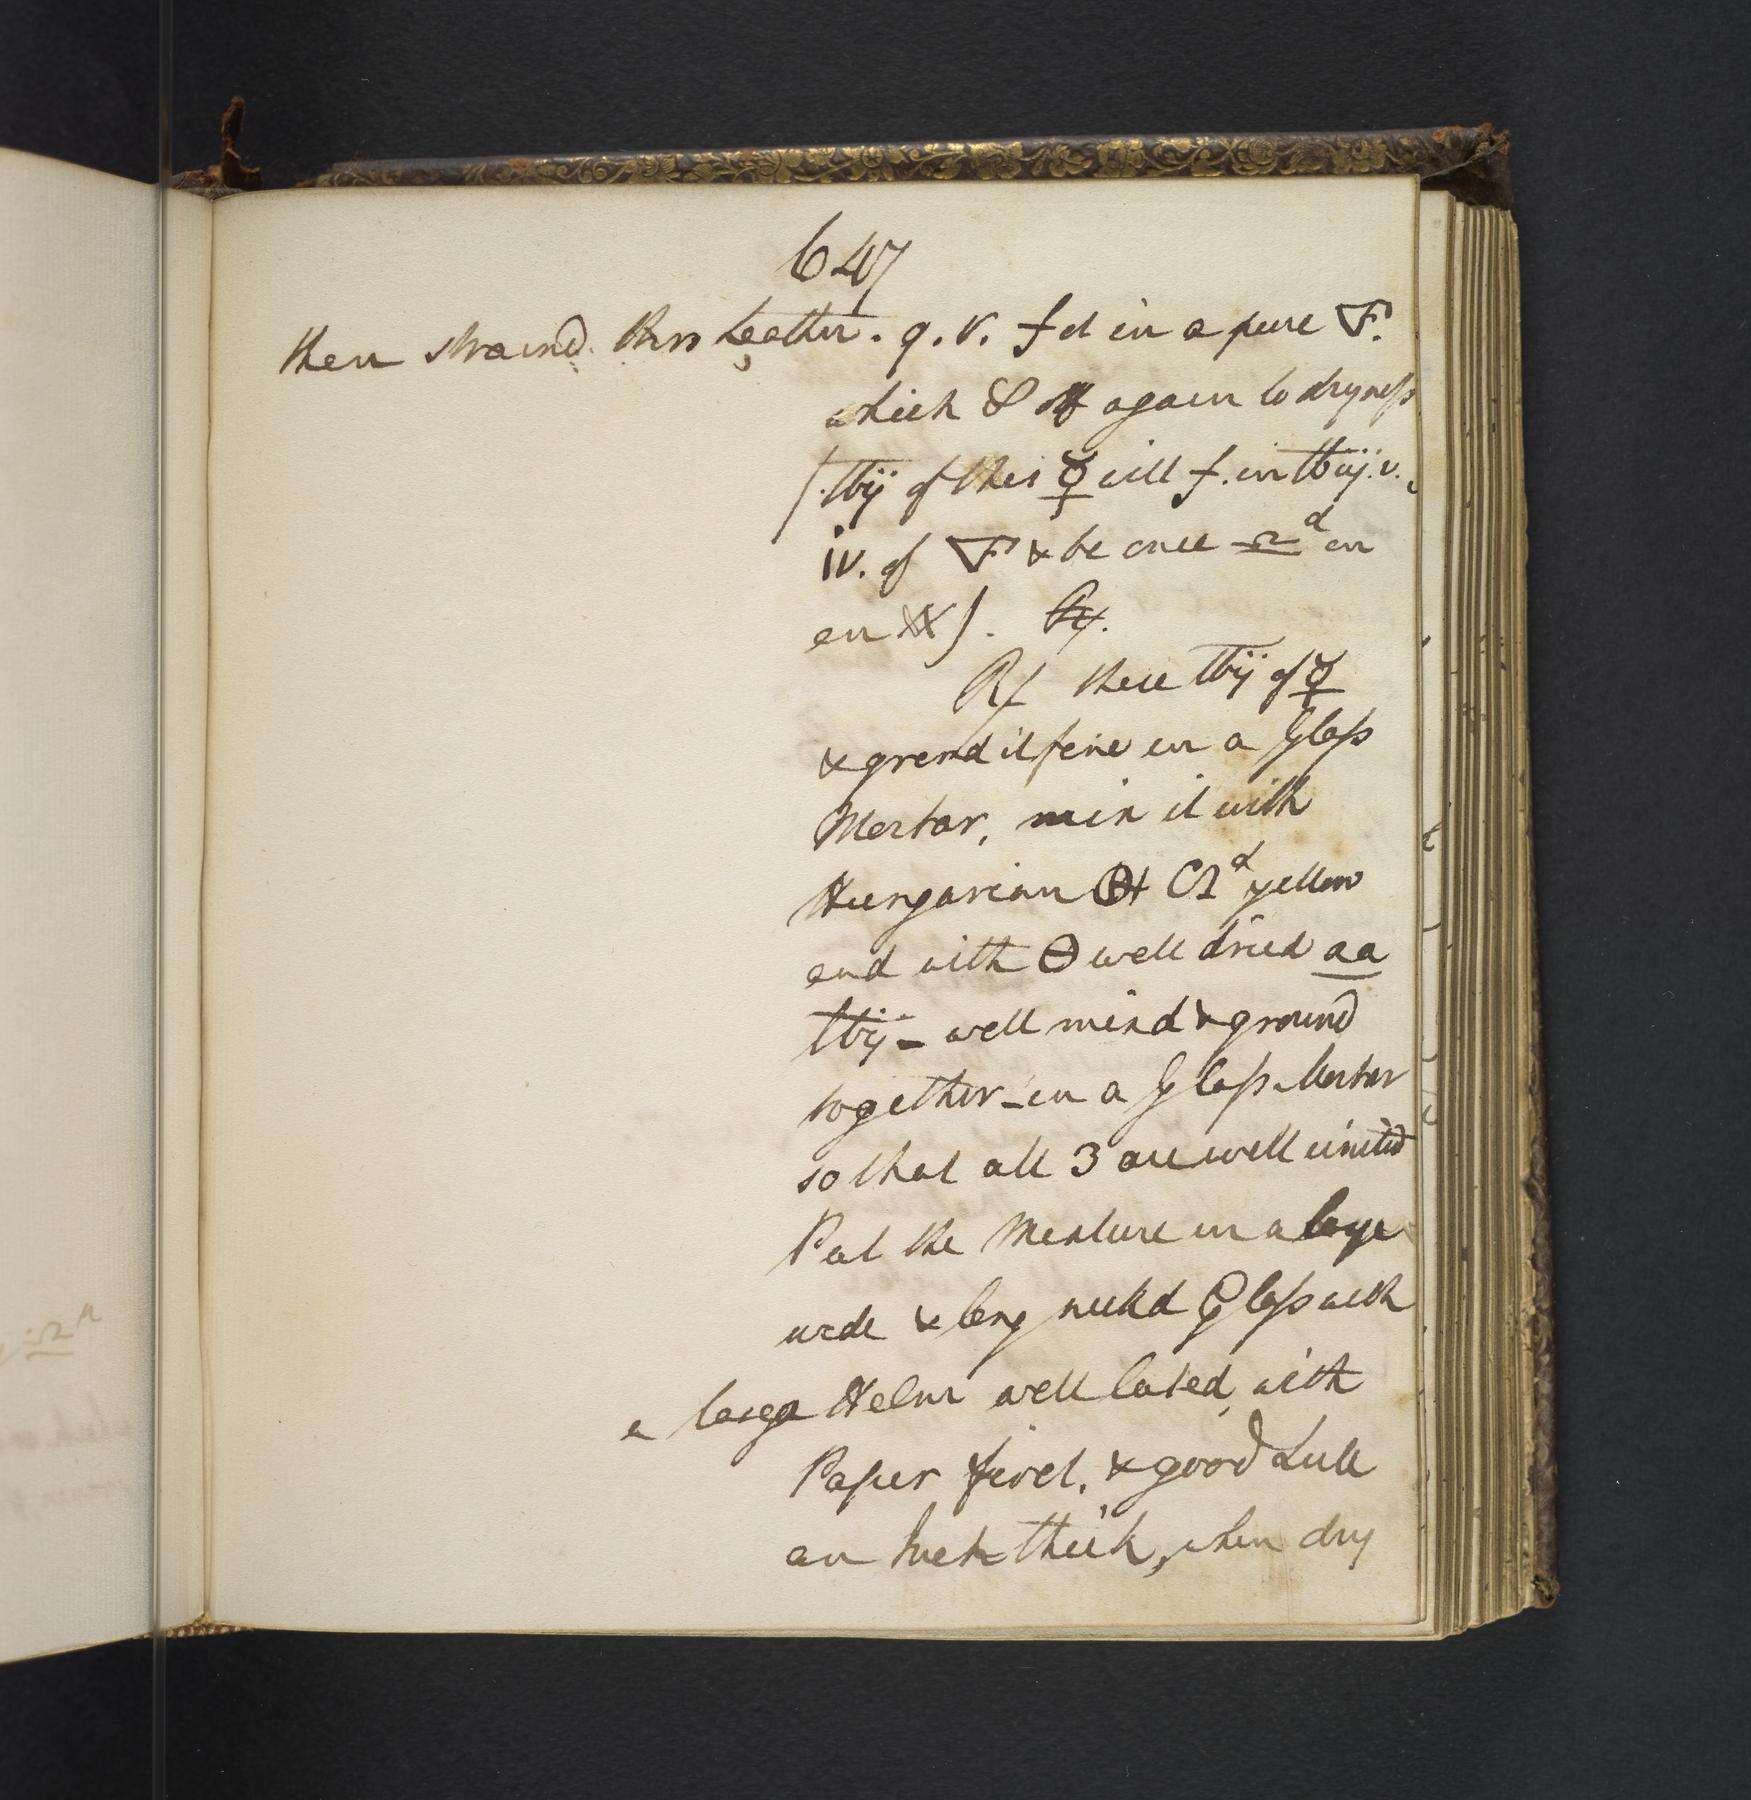 647
then straind thro Leather. q.v. f it in a pure 🜆.
which & off again to dryness
/. ℔ij of this ☿ will f. in ℔iij. v.
iv. of 🜆 & be once ♎d in
an XX). ℞.
℞ these ℔ij of ☿
& grind it fine in a Glass
Mortar, mix it with
Hungarian 🜖 d yellow
and with 🜔 well dried aa
℔ij - well mixd & ground
together - in a Glass Mortar
so that all 3 are well united
Put the Mixture in a large
wide & long neckd Glass with
a large Helm well luted, with
Paper first, & good Lute
an Inch thick, when dry